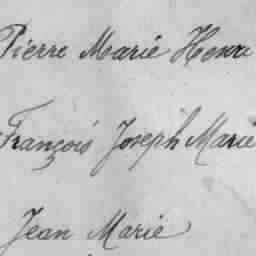 Pierre Marie Henri
François Joseph Marie
Jean Marie